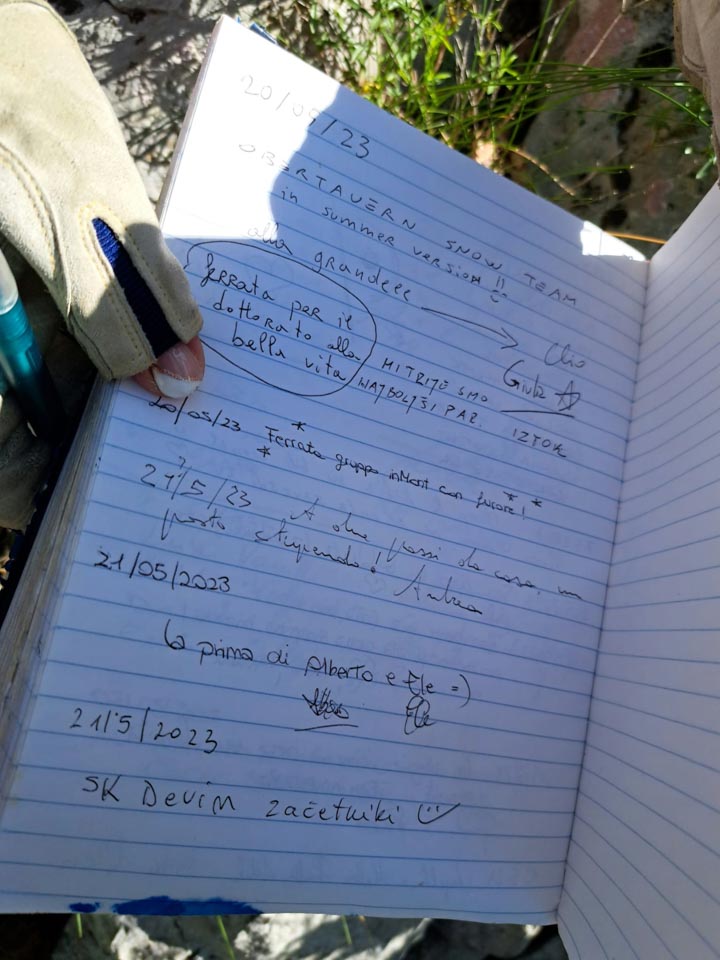 20/05/23
OBERTAUERN SNOW TEAM
in summer version !!
alla grandeee
Clio
Giulia
ferrata per il
dottorato alla
bella vita
HITRIJE SMO
NAJBOLJŠI PAR. IZTOK
20/05/23 * Ferrata gruppo con furore! * *
*
21/5/23 A due passi da casa, un
posto stupendo! Andrea
21/05/2023
la prima di Alberto e Ele =)
Ele
21/5/2023
SK Devin začetniki